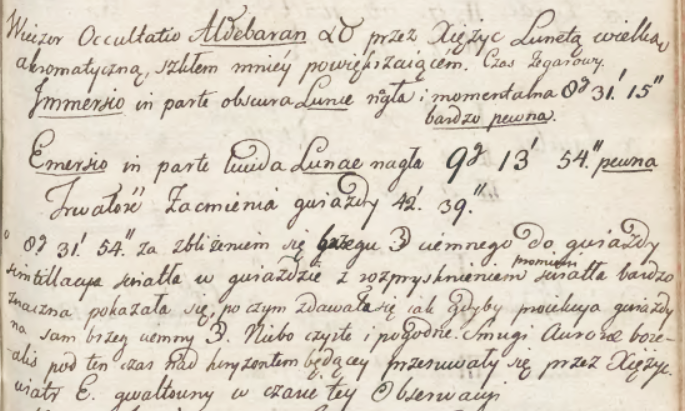 Wieczor Occultatio Aldebaran α♉ przez Xiężyc Lunetą wielką
akromatyczną, szkłem mniéy powiększaiącem. Czas Zegarowy.
Immersio in parte obscura Lunae nagła i momentalna 8g 31' 15"
bardzo pewna.
Emersio in parte lucida Lunae nagła 9g 13' 54." pewna
Trwałość Zacmienia gwiazdy 42'. 39."
8g 31.' 54." za zbliżeniem się brzegu ☽ ciemnego do gwiazdy
scintillacya swiatła w gwiazdzie z rozprysknieniem swiatła bardzo
znaczna pokazała się, po czym zdawała się iak gdyby proiekcya gwiazdy
na sam brzeg ciemny ☽. Niebo czyste i pogodne. Smugi Aurorae bore-
-alis pod ten czas nad horyzontem będącey przesuwały się przez Xiężyc.
wiatr E. gwałtowny w czasie tey Obserwacyi